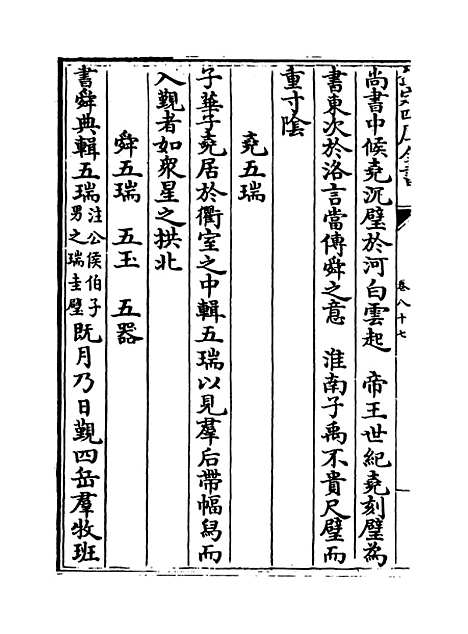 尚書中候堯沉璧於河白雲起　帝王世紀堯刻璧為
書東次於洛言當傳舜之意　淮南子禹不貴尺璧而
重寸陰
堯五瑞
子華子堯居於衢室之中輯五瑞以見羣后帶幅舄而
入覲者如衆星之拱北
舜五瑞　五玉　五器
書舜典輯五瑞注公侯伯子男之瑞圭璧既月乃日覲四岳羣牧班
卷八十七